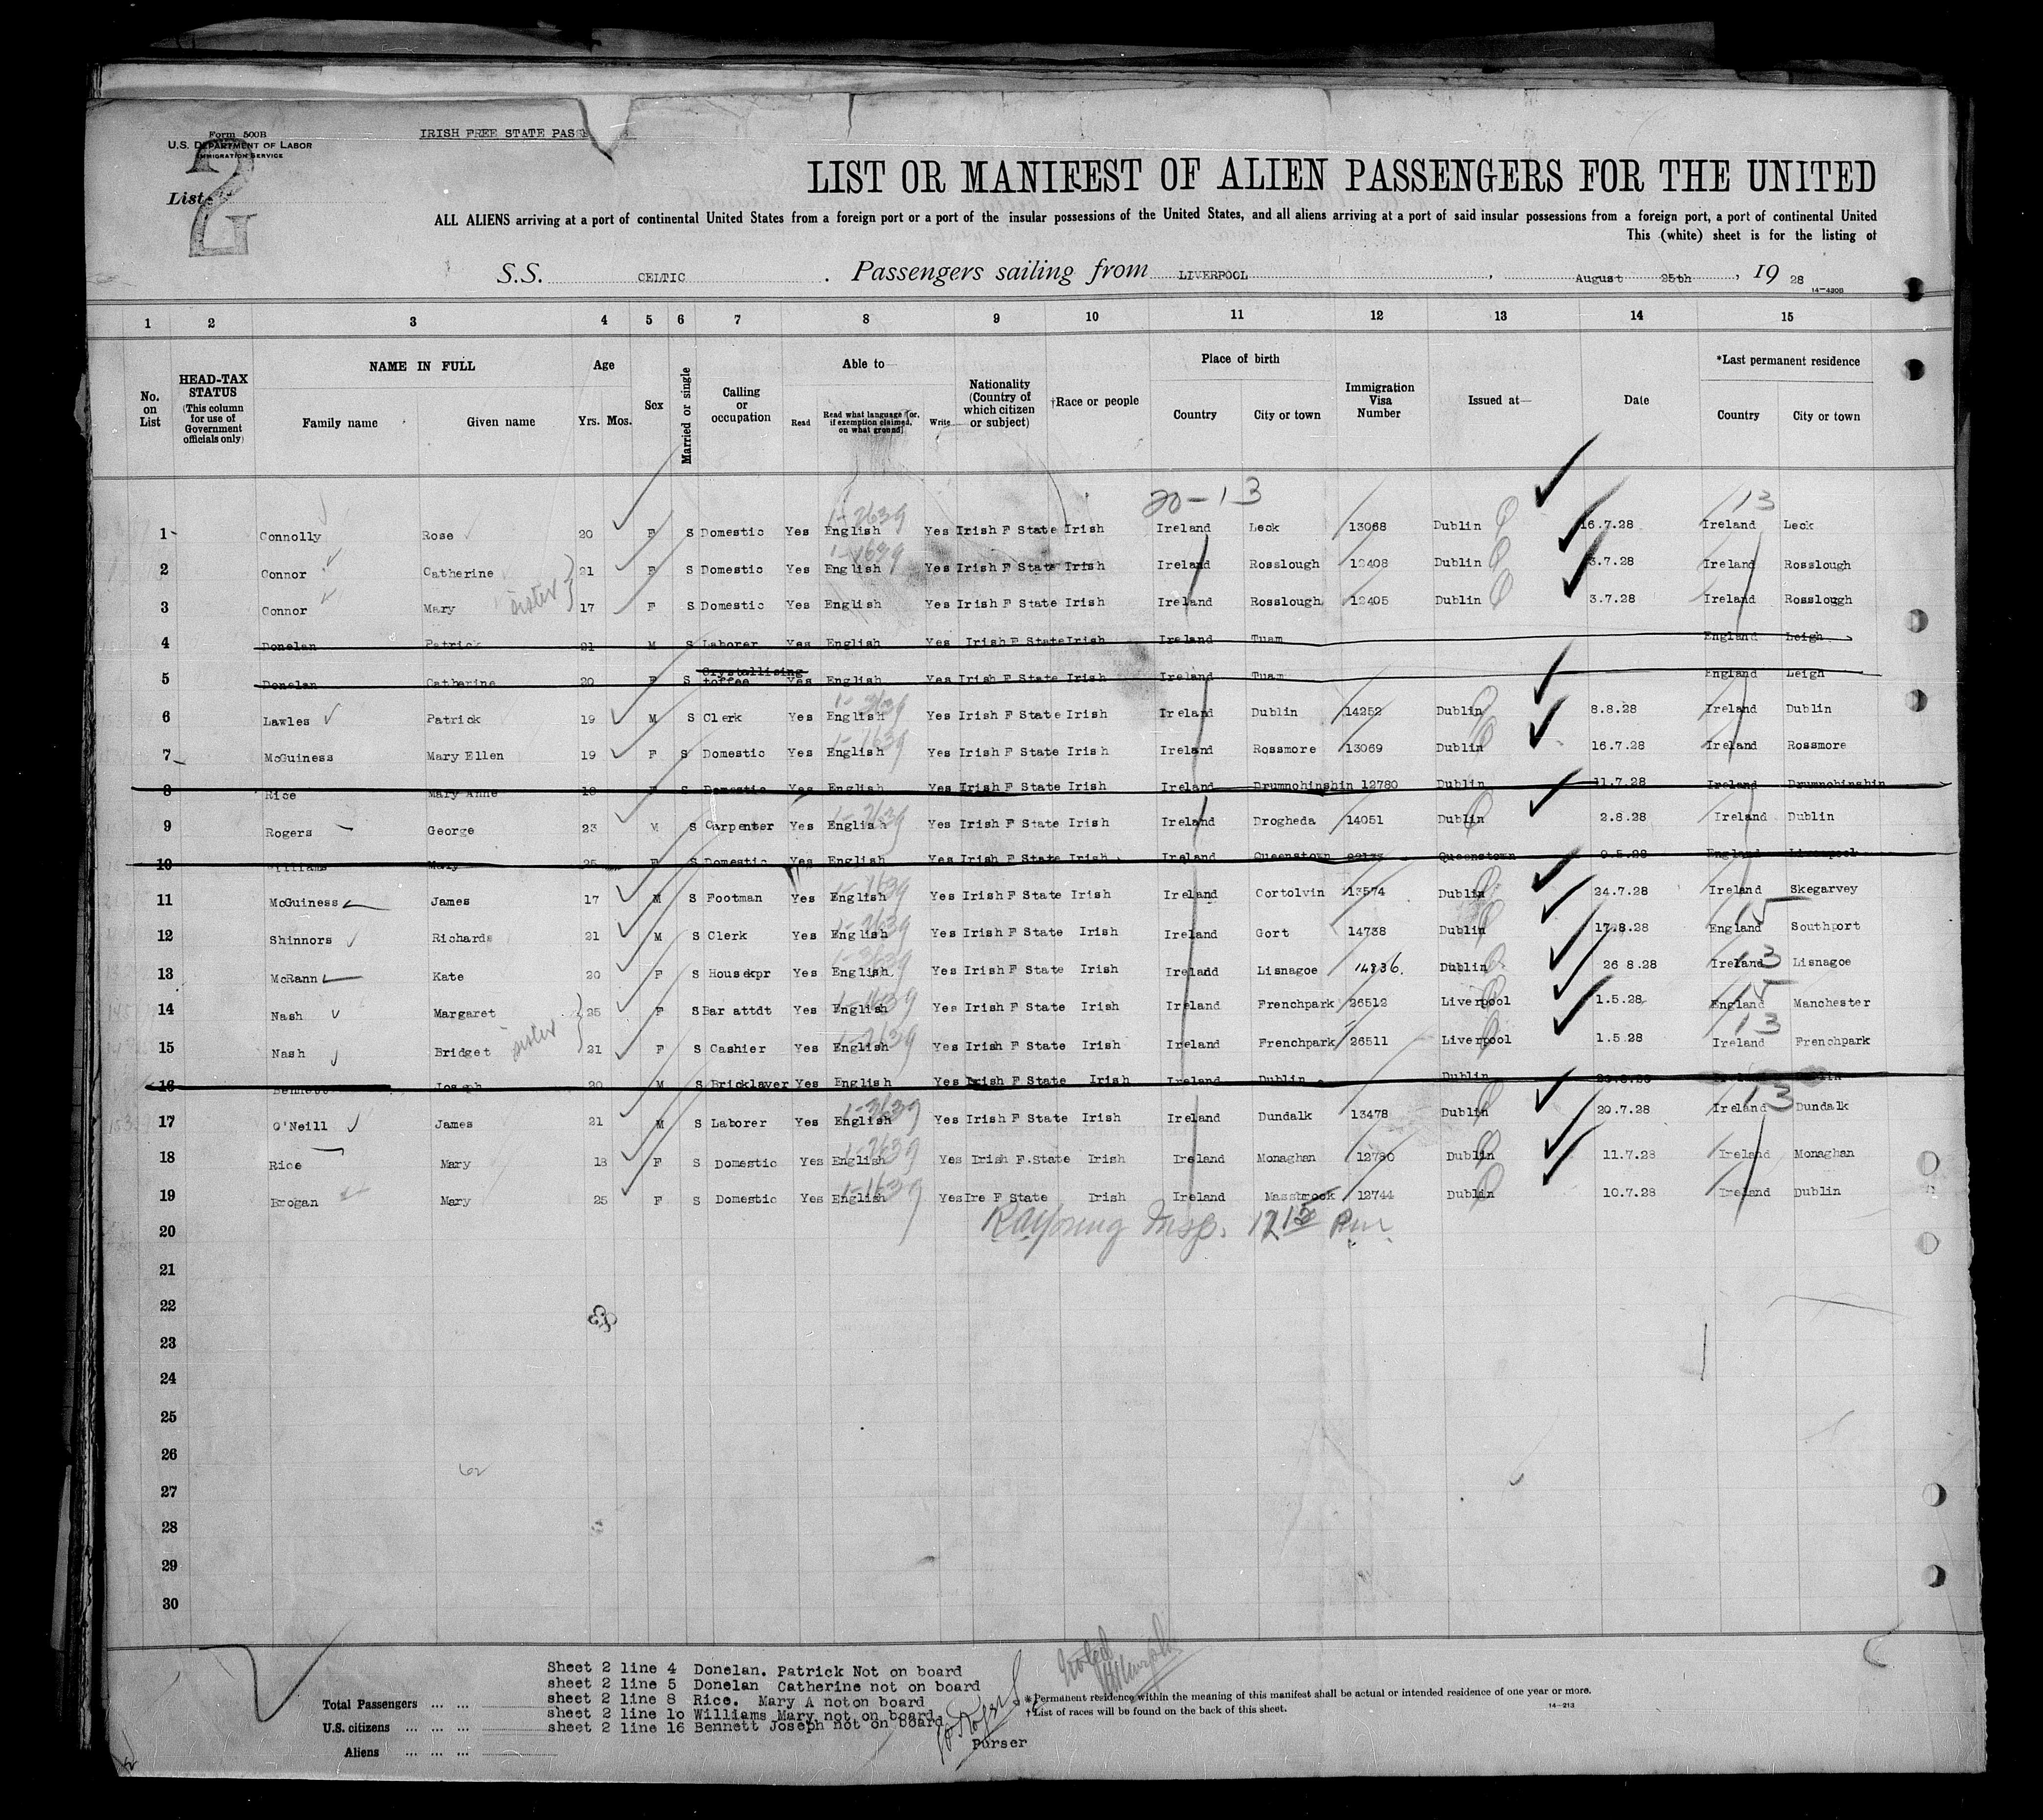 Form 500B
U.S. DEPARTMENT OF LABOR
IMMIGRATION SERVICE
IRISH FREE STATE PASS
List 2
LIST OR MANIFEST OF ALIEN PASSENGERS FOR THE UNITED
ALL ALIENS arriving at a port of continental United States from a foreign port or a port of the insular possessions of the United States, and all aliens arriving at a port of said insular possessions from a foreign port, a port of continental United
This (white) sheet is for the listing of
S.S. CELTIC. Passengers sailing from LIVERPOOL, August 25th, 19 28
14-430B
1 2 3 4 5 6 7 8 9 10 11 12 13 14 15
No. on List
HEAD-TAX STATUS (This column for use of Government officials only)
NAME IN FULL Family name Given name
Age Yrs. Mos.
Sex
Married or single
Calling or occupation
Able to Read Read what language [or, if exemption claimed, on what ground] Write
Nationality (Country of which citizen or subject)
†Race or people
Place of birth Country City or town
Immigration Visa Number
Issued at—
Date
*Last permanent residence Country City or town
20-13 13
1-2639
1 Connolly Rose 20 F S Domestic Yes English Yes Irish F State Irish Ireland Leck 13068 Dublin 16.7.28 Ireland Leck
1-1639
2 Connor Catherine 21 F S Domestic Yes English Yes Irish F State Irish Ireland Rosslough 12408 Dublin 3.7.28 Ireland Rosslough
3 Connor Mary sister 17 F S Domestic Yes English Yes Irish F State Irish Ireland Rosslough 12405 Dublin 3.7.28 Ireland Rosslough
4 Donelan Patrick 21 M S Laborer Yes English Yes Irish F State Irish Ireland Tuam England Leigh
5 Donelan Catherine 20 F S Crystallising toffee Yes English Yes Irish F State Irish Ireland Tuam England Leigh
1-3639
6 Lawles Patrick 19 M S Clerk Yes English Yes Irish F State Irish Ireland Dublin 14252 Dublin 8.8.28 Ireland Dublin
1-1639
7 McGuiness Mary Ellen 19 F S Domestic Yes English Yes Irish F State Irish Ireland Rossmore 13069 Dublin 16.7.28 Ireland Rossmore
8 Rice Mary Anne 18 F S Domestic Yes English Yes Irish F State Irish Ireland Drumnohinshin 12780 Dublin 11.7.28 Ireland Drumnohinshin
1-2639
9 Rogers George 23 M S Carpenter Yes English Yes Irish F State Irish Ireland Drogheda 14051 Dublin 2.8.28 Ireland Dublin
10 Williams Mary 25 F S Domestic Yes English Yes Irish F State Irish Ireland Queenstown Queenstown 9.5.28 England Liverpool
1-1639
11 McGuiness James 17 M S Footman Yes English Yes Irish F State Irish Ireland Cortolvin 13574 Dublin 24.7.28 Ireland Skegarvey
1-2639 15
12 Shinnors Richards 21 M S Clerk Yes English Yes Irish F State Irish Ireland Gort 14738 Dublin 17.8.28 England Southport
1-3639 13
13 McRann Kate 20 F S Housekpr Yes English Yes Irish F State Irish Ireland Lisnagoe 14936. Dublin 26 8.28 Ireland Lisnagoe
1-1639 15
14 Nash Margaret 25 F S Bar attdt Yes English Yes Irish F State Irish Ireland Frenchpark 26512 Liverpool 1.5.28 England Manchester
1-2639 13
15 Nash Bridget sister 21 F S Cashier Yes English Yes Irish F State Irish Ireland Frenchpark 26511 Liverpool 1.5.28 Ireland Frenchpark
16 Bennett Joseph 20 M S Bricklayer Yes English Yes Irish F State Irish Ireland Dublin Dublin Ireland Dublin
1-3639 13
17 O'Neill James 21 M S Laborer Yes English Yes Irish F State Irish Ireland Dundalk 13478 Dublin 20.7.28 Ireland Dundalk
1-2639
18 Rice Mary 18 F S Domestic Yes English Yes Irish F.State Irish Ireland Monaghan 12780 Dublin 11.7.28 Ireland Monaghan
1-1639
19 Brogan Mary 25 F S Domestic Yes English Yes Ire F State Irish Ireland Massbrook 12744 Dublin 10.7.28 Ireland Dublin
20 R A Young Insp. 12 15 Pm.
21
22
23
24
25
26
27
28
29
30
Sheet 2 line 4 Donelan. Patrick Not on board
sheet 2 line 5 Donelan Catherine not on board
sheet 2 line 8 Rice. Mary A noton board
sheet 2 line 1o Williams Mary not on board
sheet 2 line 16 Bennett Joseph not on board
Purser
Total Passengers ... ...
U.S. citizens ... ... ...
Aliens ... ... ...
Noted
* Permanent residence within the meaning of this manifest shall be actual or intended residence of one year or more.
† List of races will be found on the back of this sheet.
14-213